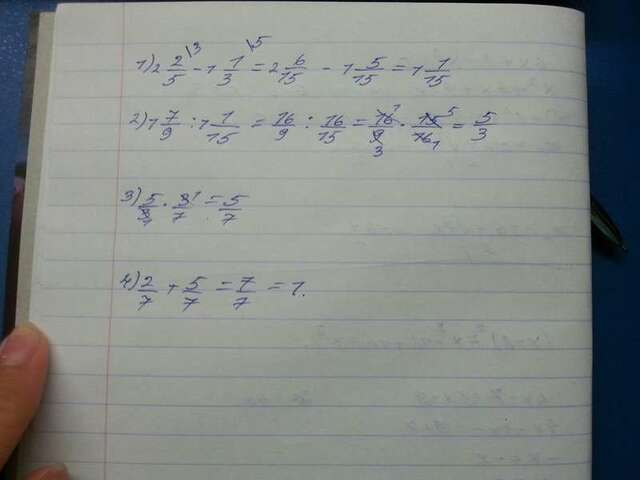 1) 2 2/5 \3 - 1 1/3 \5 = 2 6/15 - 1 5/15 = 1 1/15
2) 1 7/9 : 1 1/15 = 16/9 : 16/15 = 16 1/9 3 · 15 5/16 1 = 5/3
3) 5/3 1 · 3 1/7 = 5/7
4) 2/7 + 5/7 = 7/7 = 1.